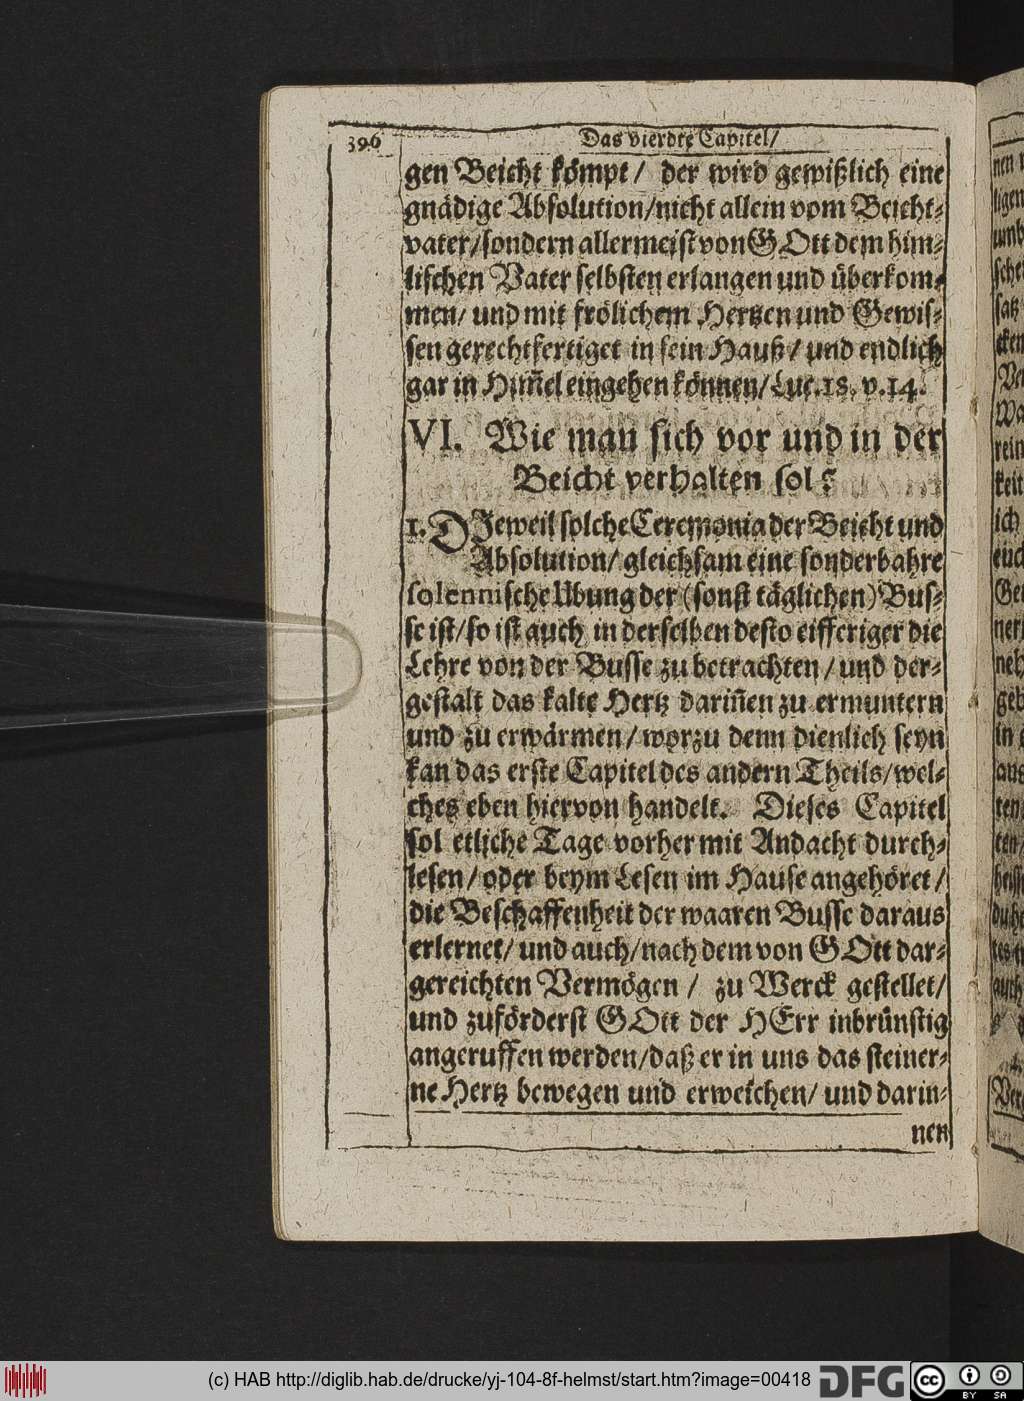 396
Das vierdte Capitel/
gen Beicht kömpt/ der wird gewißlich eine
gnädige Absolution/nicht allein vom Beicht-
vater/sondern allermeist von GOtt dem him-
lischen Vater selbsten erlangen und überkom-
men/ und mit frölichem Hertzen und Gewis-
sen gerechtfertiget in sein Hauß/ und endlich
gar in Him̃el eingehen können/Luc.18. v.14.
VI. Wie man sich vor und in der
Beicht verhalten sol?
1. DIeweil solche Ceremonia der Beicht und
Absolution/ gleichsam eine sonderbahre
solennische Übung der (sonst täglichen) Bus-
se ist/so ist auch in derselben desto eifferiger die
Lehre von der Busse zu betrachten/ und der-
gestalt das kalte Hertz darin̄en zu ermuntern
und zu erwärmen/ worzu denn dienlich seyn
kan das erste Capitel des andern Theils/wel-
ches eben hiervon handelt. Dieses Capitel
sol etliche Tage vorher mit Andacht durch-
lesen/ oder beym Lesen im Hause angehöret/
die Beschaffenheit der waaren Busse daraus
erlernet/ und auch/nach dem von GOtt dar-
gereichten Vermögen/ zu Werck gestellet/
und zuförderst GOtt der HErr inbrünstig
angeruffen werden/daß er in uns das steiner-
ne Hertz bewegen und erweichen/ und darin-
nen
(c) HAB http://diglib.hab.de/drucke/yj-104-8f-helmst/start.htm?image=00418
DFG
cc
BY SA